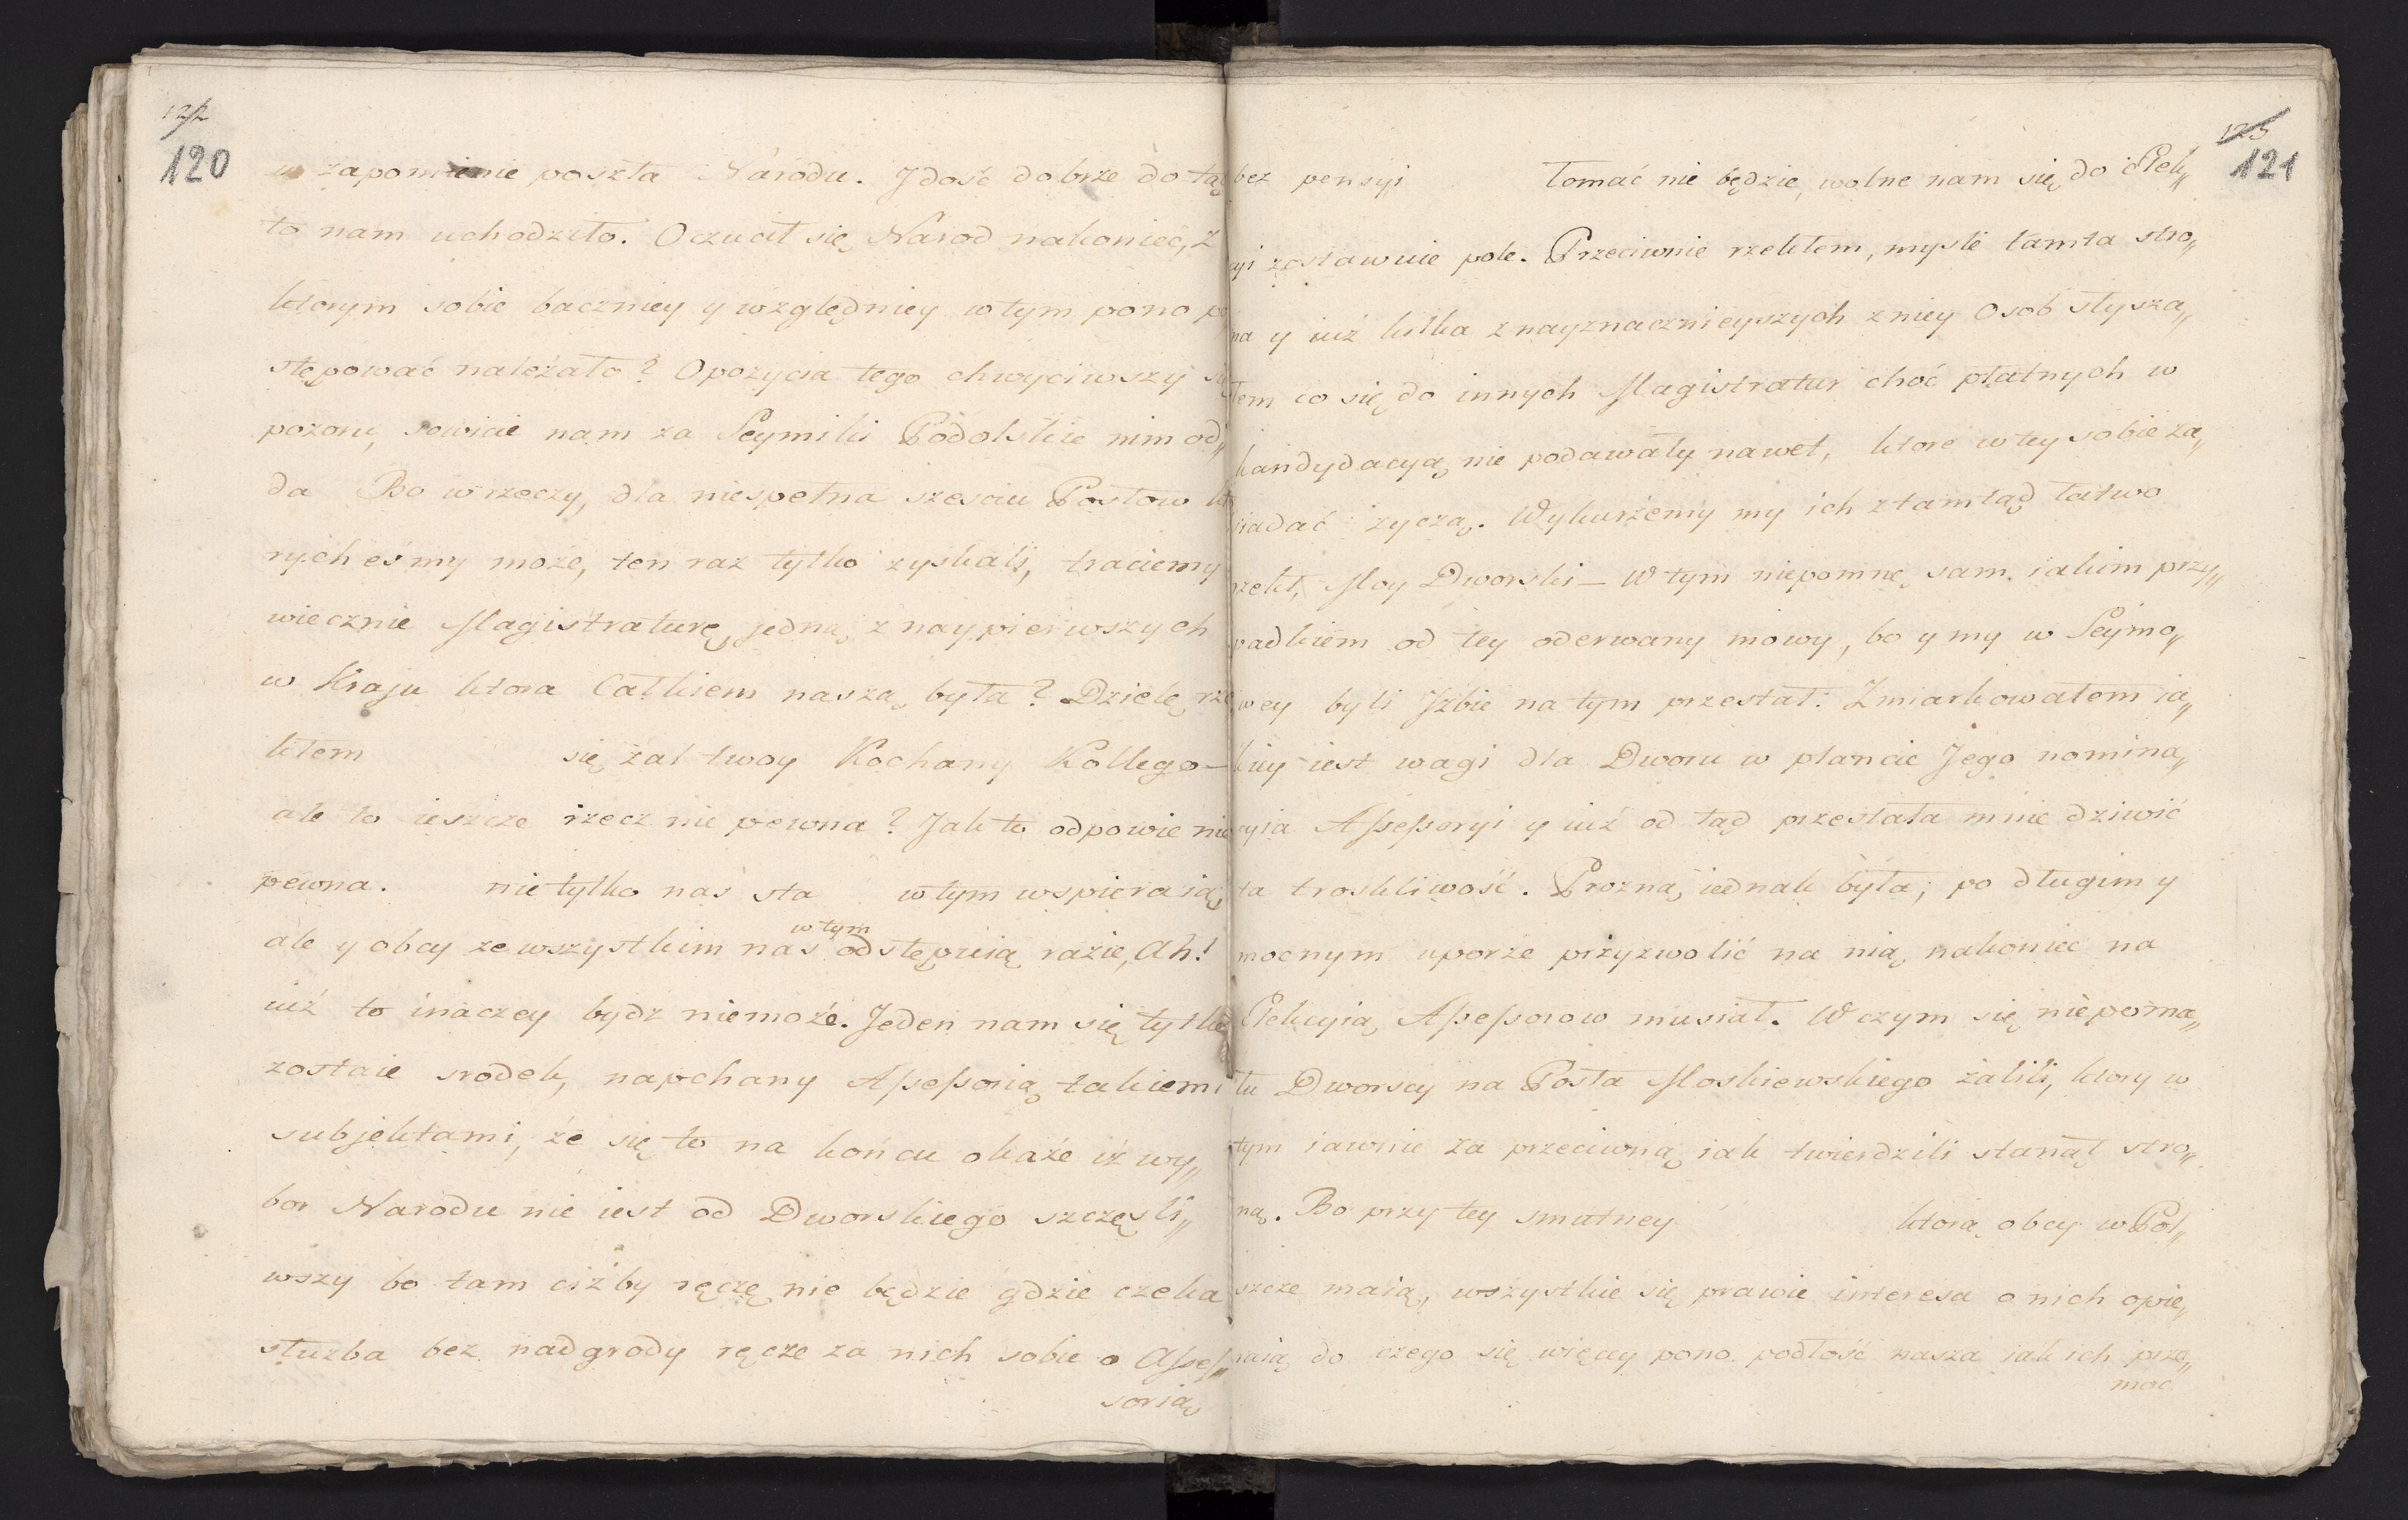 122
120
w zapomnienie poszła Narodu. J dość dobrze do tą
to nam uchodziło. Oczucił się Narod nakoniec, z
ktorym sobie baczniey y względniey w tym pono po
stępować należało? Opozycia tego chwyciwszy się
pozoru, sowicie nam za Seymiki Podolskie nim od„
da Bo w rzeczy, dla niespełna szesciu Posłow kto
rych eśmy może, ten raz tylko zyskali, traciemy
wiecznie Magistraturę, jedną z naypierwszych
w Kraju ktora Całkiem naszą była? Dzielę rze
kłem się żal twoy Kochany Kollego —
ale to ieszcze rzecz nie pewna? Jak to odpowie nie
pewna. nie tylko nas sta w tym wspieraią
w tym
ale y obcy ze wszystkim nas odstępuią razie, Ah!
iuż to inaczey bydz niemoże. Jeden nam się tylko
zostaie srodek, napchany Assessorią takiemi
subjektami, że się to na końcu okaże iż wy„
bor Narodu nie iest od Dworskiego szczęsli„
wszy bo tam ciżby ręczę nie będzie gdzie czeka
służba bez nadgrody ręcze za nich sobie o Asses„
sorią
123
121
bez pensyi łomać nie będzie, wolne nam się do Elek„
cyi zostawuie pole. Przeciwnie rzekłem, mysli tamta stro„
na y iuż kilka z nayznacznieyszych z niey Osob słysza„
łem co się do innych Magistratur choć płatnych w
kandydacyą nie podawały nawet, ktore w tey sobie za„
siadać życzą. Wykurżemy my ich ztamtąd łatwo
rzekł, Moy Dworski — W tym niepomnę sam iakim przy„
padkiem od tey oderwany mowy, bo y my w Seymo„
wey byli Jzbie na tym przestał. Zmiarkowałem ia„
kiey iest wagi dla Dworu w plancie Jego nomina„
cyia Assessoryi y iuż od tąd przestała mnie dziwić
ta troskliwość. Prozną iednak była; po długim y
mocnym uporze przyzwolić na nią nakoniec na
Elekcyią Assessorow musiał. W czym się niepoma„
łu Dworscy na Posła Moskiewskiego żalili, ktory w
tym iawnie za przeciwną iak twierdzili stanął stro„
ną. Bo przy tey smutney ktorą obcy w Pol„
szcze maią, wszystkie się prawie interesa o nich opie„
raią do czego się więcey pono podłość nasza iak ich prze„
moc